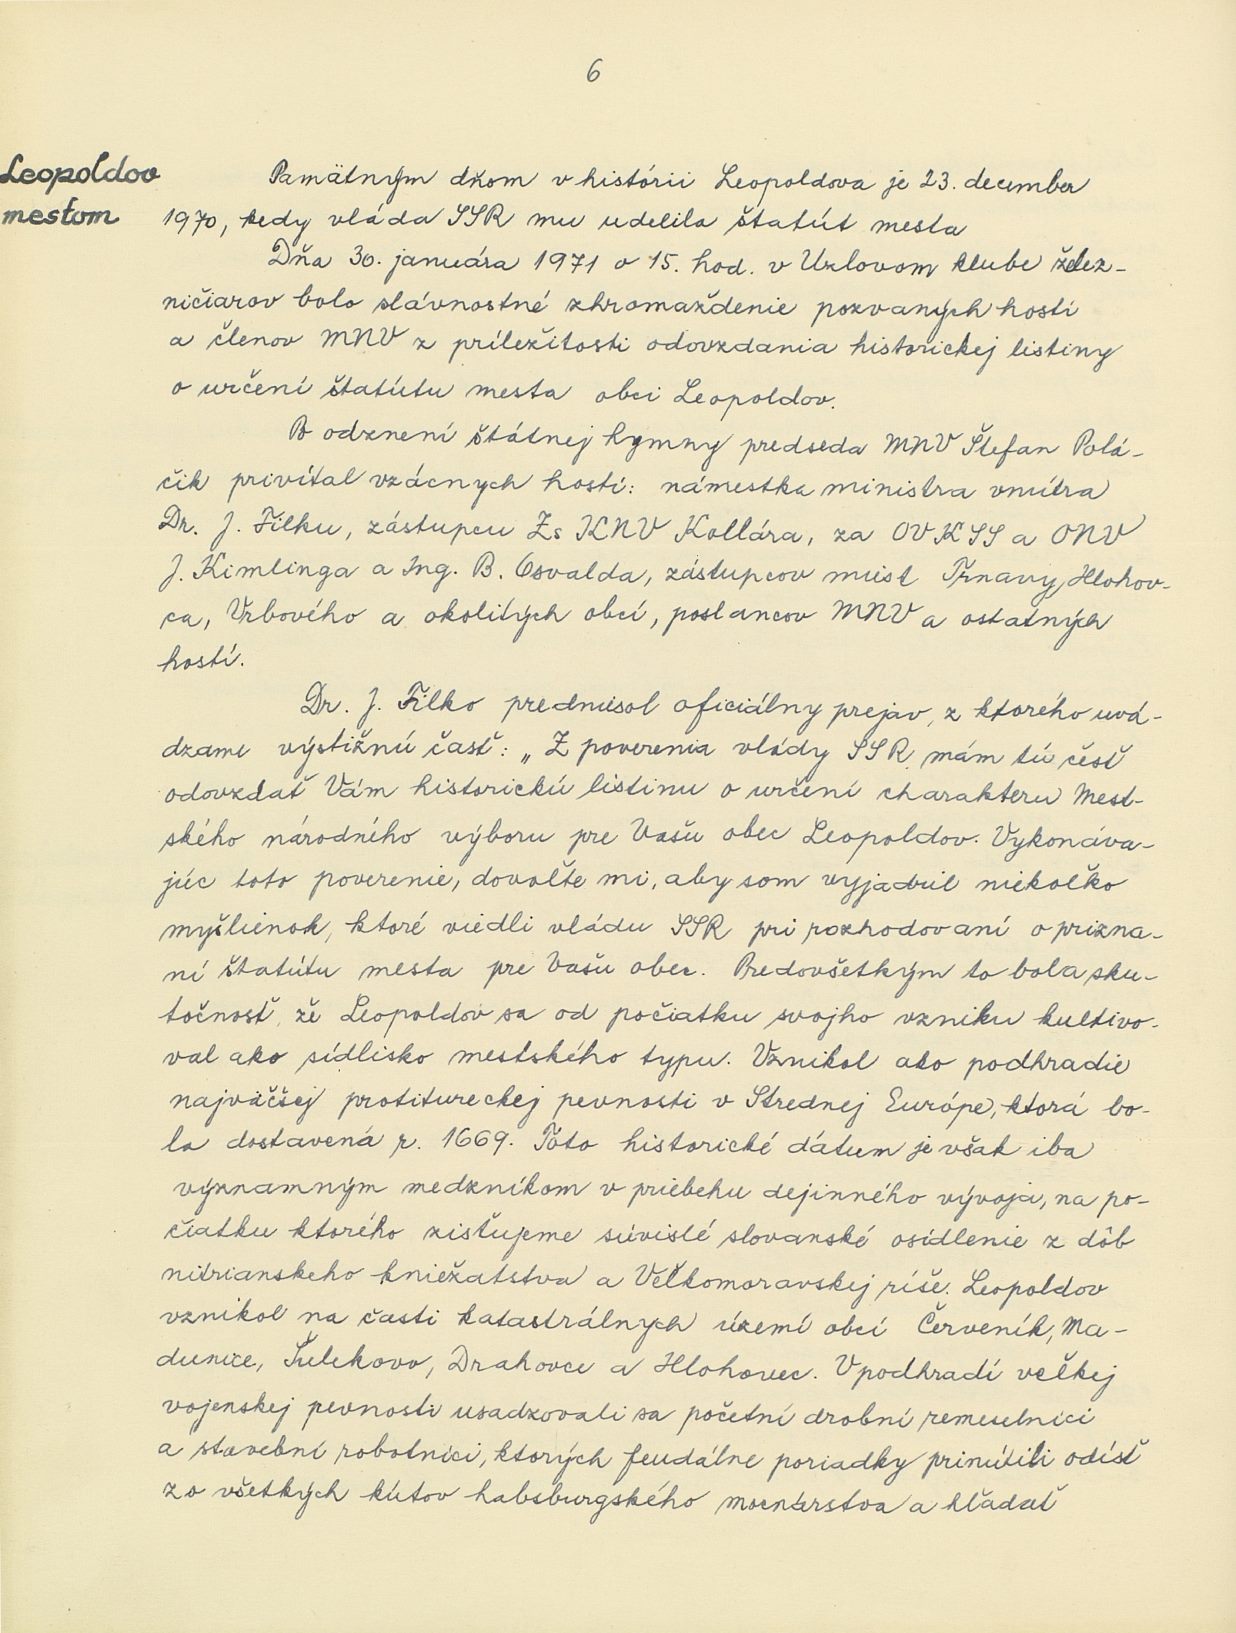 6
Leopoldov
mestom
Pamätným dňom v histórii Leopoldova je 23. december
1970, kedy vláda SSR mu udelila štatút mesta
Dňa 30. januára 1971 o 15. hod. v Uzlovom klube želez-
ničiarov bolo slávnostné zhromaždenie pozvaných hostí
a členov MNV z príležitosti odovzdania historickej listiny
o určení štatútu mesta obci Leopoldov.
Po odznení štátnej hymny predseda MNV Štefan Polá-
čik privítal vzácnych hostí: námestka ministra vnútra
Dr. J. Filku, zástupcu Zs KNV Kollára, za OV KSS a ONV
J. Kimlinga a Ing. B. Osvalda, zástupcov miest Trnavy, Hlohov-
ca, Vrbového a okolitých obcí, poslancov MNV a ostatných
hostí.
Dr. J. Filko predniesol oficiálny prejav, z ktorého uvá-
dzame výstižnú časť: „Z poverenia vlády SSR mám tú česť
odovzdať Vám historickú listinu o určení charakteru Mest-
ského národného výboru pre Vašu obec Leopoldov. Vykonáva-
júc toto poverenie, dovoľte mi, aby som vyjadril niekoľko
myšlienok, ktoré viedli vládu SSR pri rozhodovaní o prizna-
ní štatútu mesta pre Vašu obec. Predovšetkým to bola sku-
točnosť, že Leopoldov sa od počiatku svojho vzniku kultivo-
val ako sídlisko mestského typu. Vznikol ako podhradie
najväčšej protitureckej pevnosti v Strednej Európe, ktorá bo-
la dostavená r. 1669. Toto historické dátum je však iba
významným medzníkom v priebehu dejinného vývoja, na po-
čiatku ktorého zisťujeme súvislé slovanské osídlenie z dôb
nitrianskeho kniežatstva a Veľkomoravskej ríše. Leopoldov
vznikol na časti katastrálnych území obcí Červeník, Ma-
dunice, Šulekovo, Drahovce a Hlohovec. V podhradí veľkej
vojenskej pevnosti usadzovali sa početní drobní remeselníci
a stavební robotníci, ktorých feudálne poriadky prinútili odísť
zo všetkých kútov habsburgského mocnárstva a hľadať